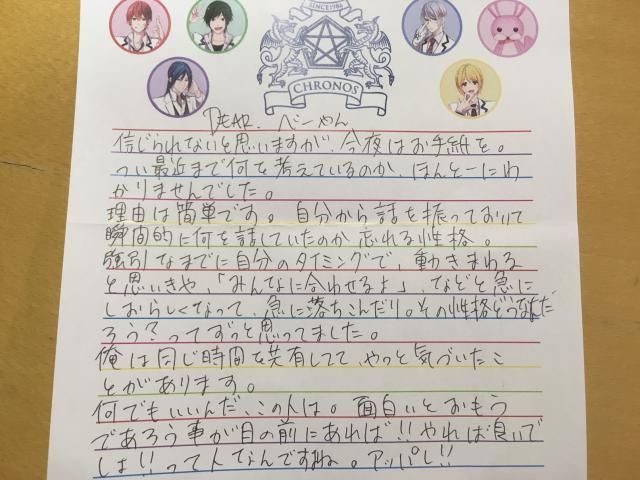 SINCE1986
CHRONOS
DEAR. べーやん
信じられないと思いますが、今夜はお手紙を。
つい最近まで何を考えているのか、ほんとーにわ
かりませんでした。
理由は簡単です。自分から話を振っておいて
瞬間的に何を話していたのか忘れる性格。
強引なまでに自分のタイミングで、動きまわる
と思いきや、「みんなに合わせるよ」、などと急に
しおらしくなって、急に落ちこんだり。その性格どうなんだ
ろう?ってずっと思ってました。
俺は同じ時間を共有してて、やっと気づいたこ
とがあります。
何でもいいんだ、この人は。面白いとおもう
であろう事が目の前にあれば!!やれば良いで
しょ!!って人なんですね。アッパレ!!